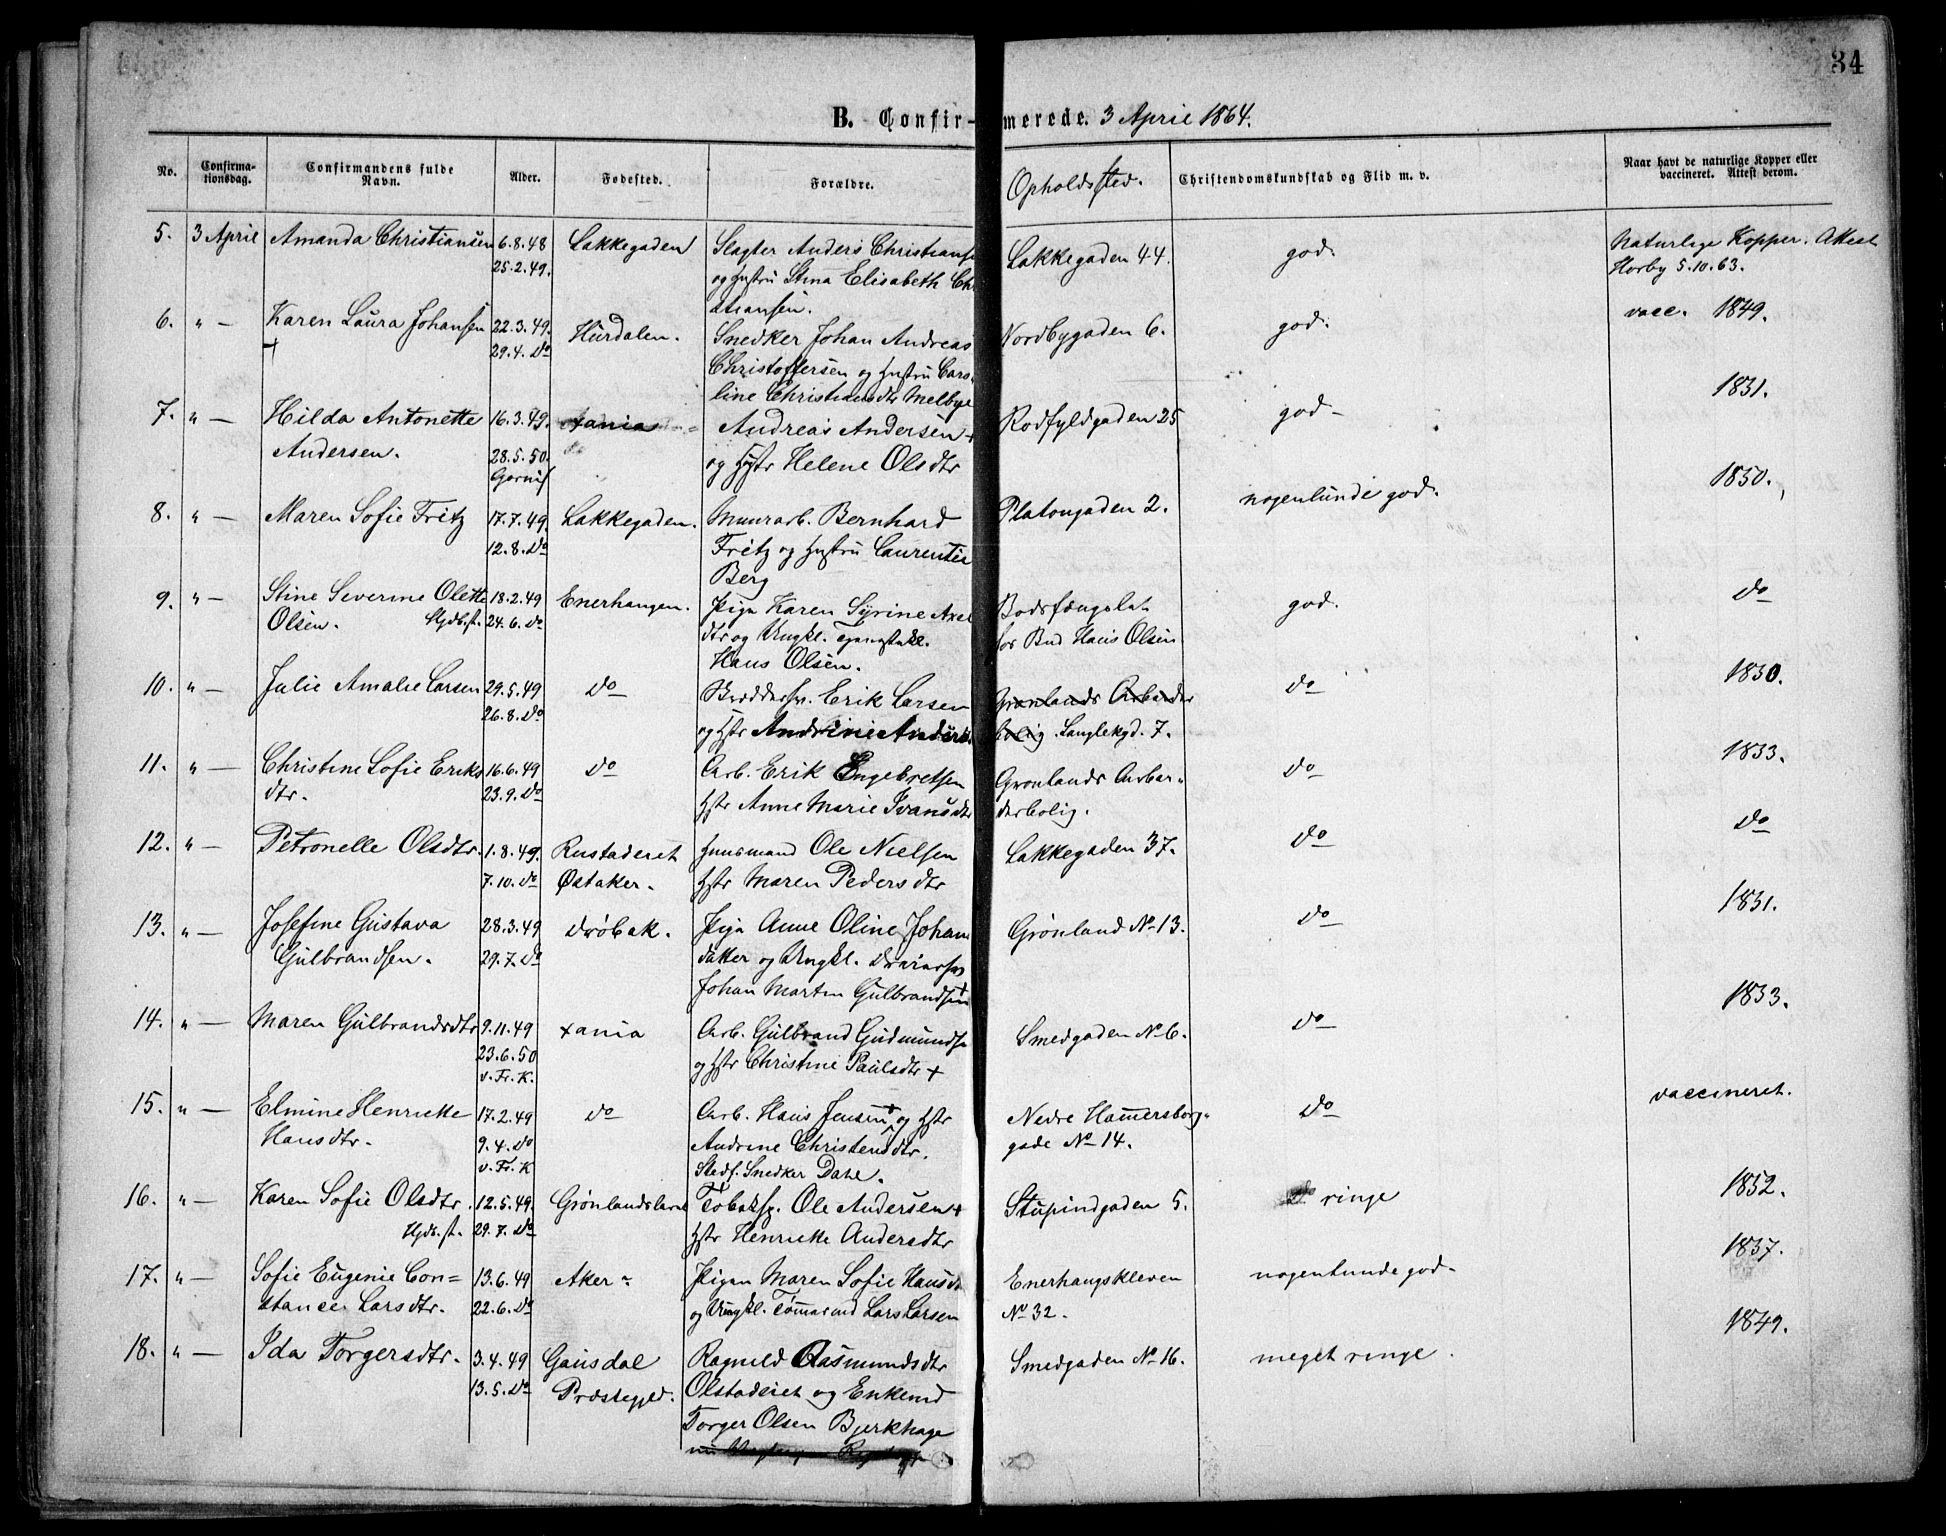 34
B. Confirmerede. 3 April 1864.
No. Confirmationsdag. Confirmandens fulde Navn. Alder. Fødested. Forældre. Opholdssted. Christendomskundskab og Flid m. v. Naar havt de naturlige Kopper eller vaccineret. Attest derom.
5. 3 April Amanda Christiansen 6.8.48 Lakkegaden Slagter Anders Christianse Lakkegaden 44. god. Naturlige Kopper. Attest
25.2.49. og Hustru Stina Elisabeth Chri Horby 5.10.63.
stiansen.
6. " — Karen Laura Johansen 22.3.49. Hurdalen. Snedker Johan Andreas Nordbygaden 6. god. vacc. 1849.
+ 29.4. do Christoffersen og Hustru Caro-
line Christiansdtr Melbye
7. " — Hilda Antonette 16.3.49. Xania Andreas Andersen + Rodfyldgaden 25 god- 1831.
Andersen. 28.5.50. og Hstr Helene Olsdtr
8. " — Maren Sofie Fritz 17.7.49. Lakkegaden. Murarb. Bernhard Platougaden 2. nogenlunde god. 1850.
12.8. do Fritz og Hustru Laurentia
Berg
9. " — Stine Severine Olette 18.2.49 Enerhaugen. Pige Karen Syrine Axel Bodsfængslet god. do
Olsen. Hjdb.st. 24.6. do dtr og Ungkl. hos Bud Hans Olsen
Hans Olsen.
10. " — Julie Amalie Larsen 29.5.49 do Erik Larsen Grønlands Arbeider do 1830.
26.8. do og Hstr Andrine Anders. bolig. Langlekgd. 7.
11. " — Christine Sofie Eriks 16.6.49 do Arb. Erik Engebretsen Grønlands Arbei- do 1833.
dtr. 23.9. do Hstr Anne Marie Ivarsdtr derbolig.
12. " — Petronelle Olsdtr. 1.8.49. Rustaderet Huusmand Ole Nielsen Lakkegaden 37. do do
7.10. do Østaker. Hstr Maren Pedersdtr
13. " — Josefine Gustava 28.3.49 Drøbak. Pige Anne Oline Johans Grønland No 13. do 1831.
Gulbrandsen. 29.7. do datter og Ungkl.
Johan Martin Gulbrandsen
14. " — Maren Gulbrandsdtr 9.11.49 Xania Arb. Gulbrand Gudmundse Smedgaden No 6. do 1833.
23.6.50 og Hstr Christine Paulsdtr +
v. Fr. K.
15. " — Elmine Henrikke 17.2.49 do Arb. Hans Jensen + og Hstr Nedre Hamersborg- do vaccineret.
Hansdtr. 9.4. do Andrine Christensdtr. gade No 14.
v. Fr. K Stedf. Snedker Dahl.
16. " — Karen Sofie Olsdtr. 12.5.49. Grønlandsleret Tobaksp. Ole Andersen + Stupindgaden 5. ringe 1852.
Hjdb.st. 29.7. do Hstr Henrikke Andersdtr
17. " — Sofie Eugenie Con= 13.6.49 Aker Pigen Maren Sofie Hansd Enerhaugskleven nogenlunde god. 1837.
stance Larsdtr. 22.6. do og Ungkl. Tømmermd Lars Larsen No 32.
18. " — Ida Torgersdtr. 3.4.49 Gausdal Ragnild Aasmundsdtr Smedgaden No 16. meget ringe. 1849.
13.5. do Præstegjel. Olstaderet og Enkemd
Torger Olsen Bjerkhage